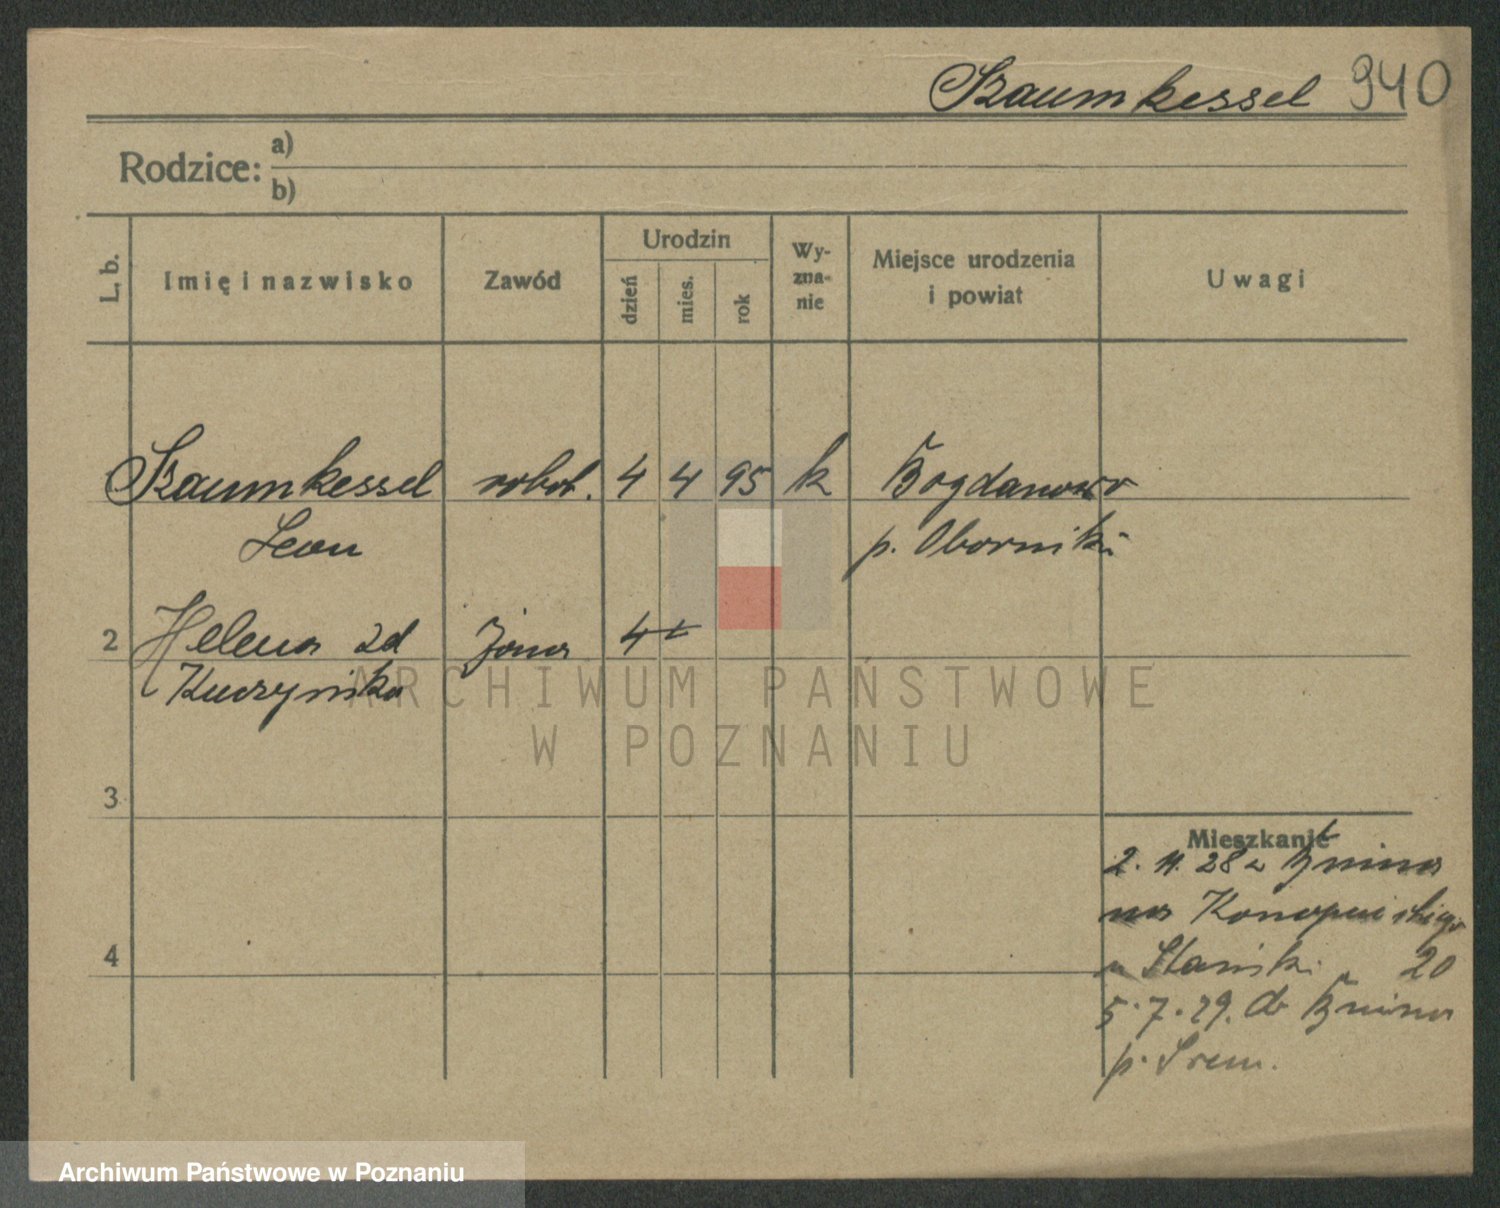 Szaumkessel 940
Rodzice: a)
b)
L. b.
Imię i nazwisko
Zawód
Urodzin
dzień
mies.
rok
Wy-
zna-
nie
Miejsce urodzenia
i powiat
Uwagi
Szaumkessel robot. 4 4 95 k Bogdanowo
Leon p. Oborniki
2 Helena zd żona
Kuczyńska
ARCHIWUM PAŃSTWOWE
W POZNANIU
3
Mieszkanie
2. 11. 28 z Bnina
na
4
20
5.7.29. do Bnina
p. Śrem.
Archiwum Państwowe w Poznaniu